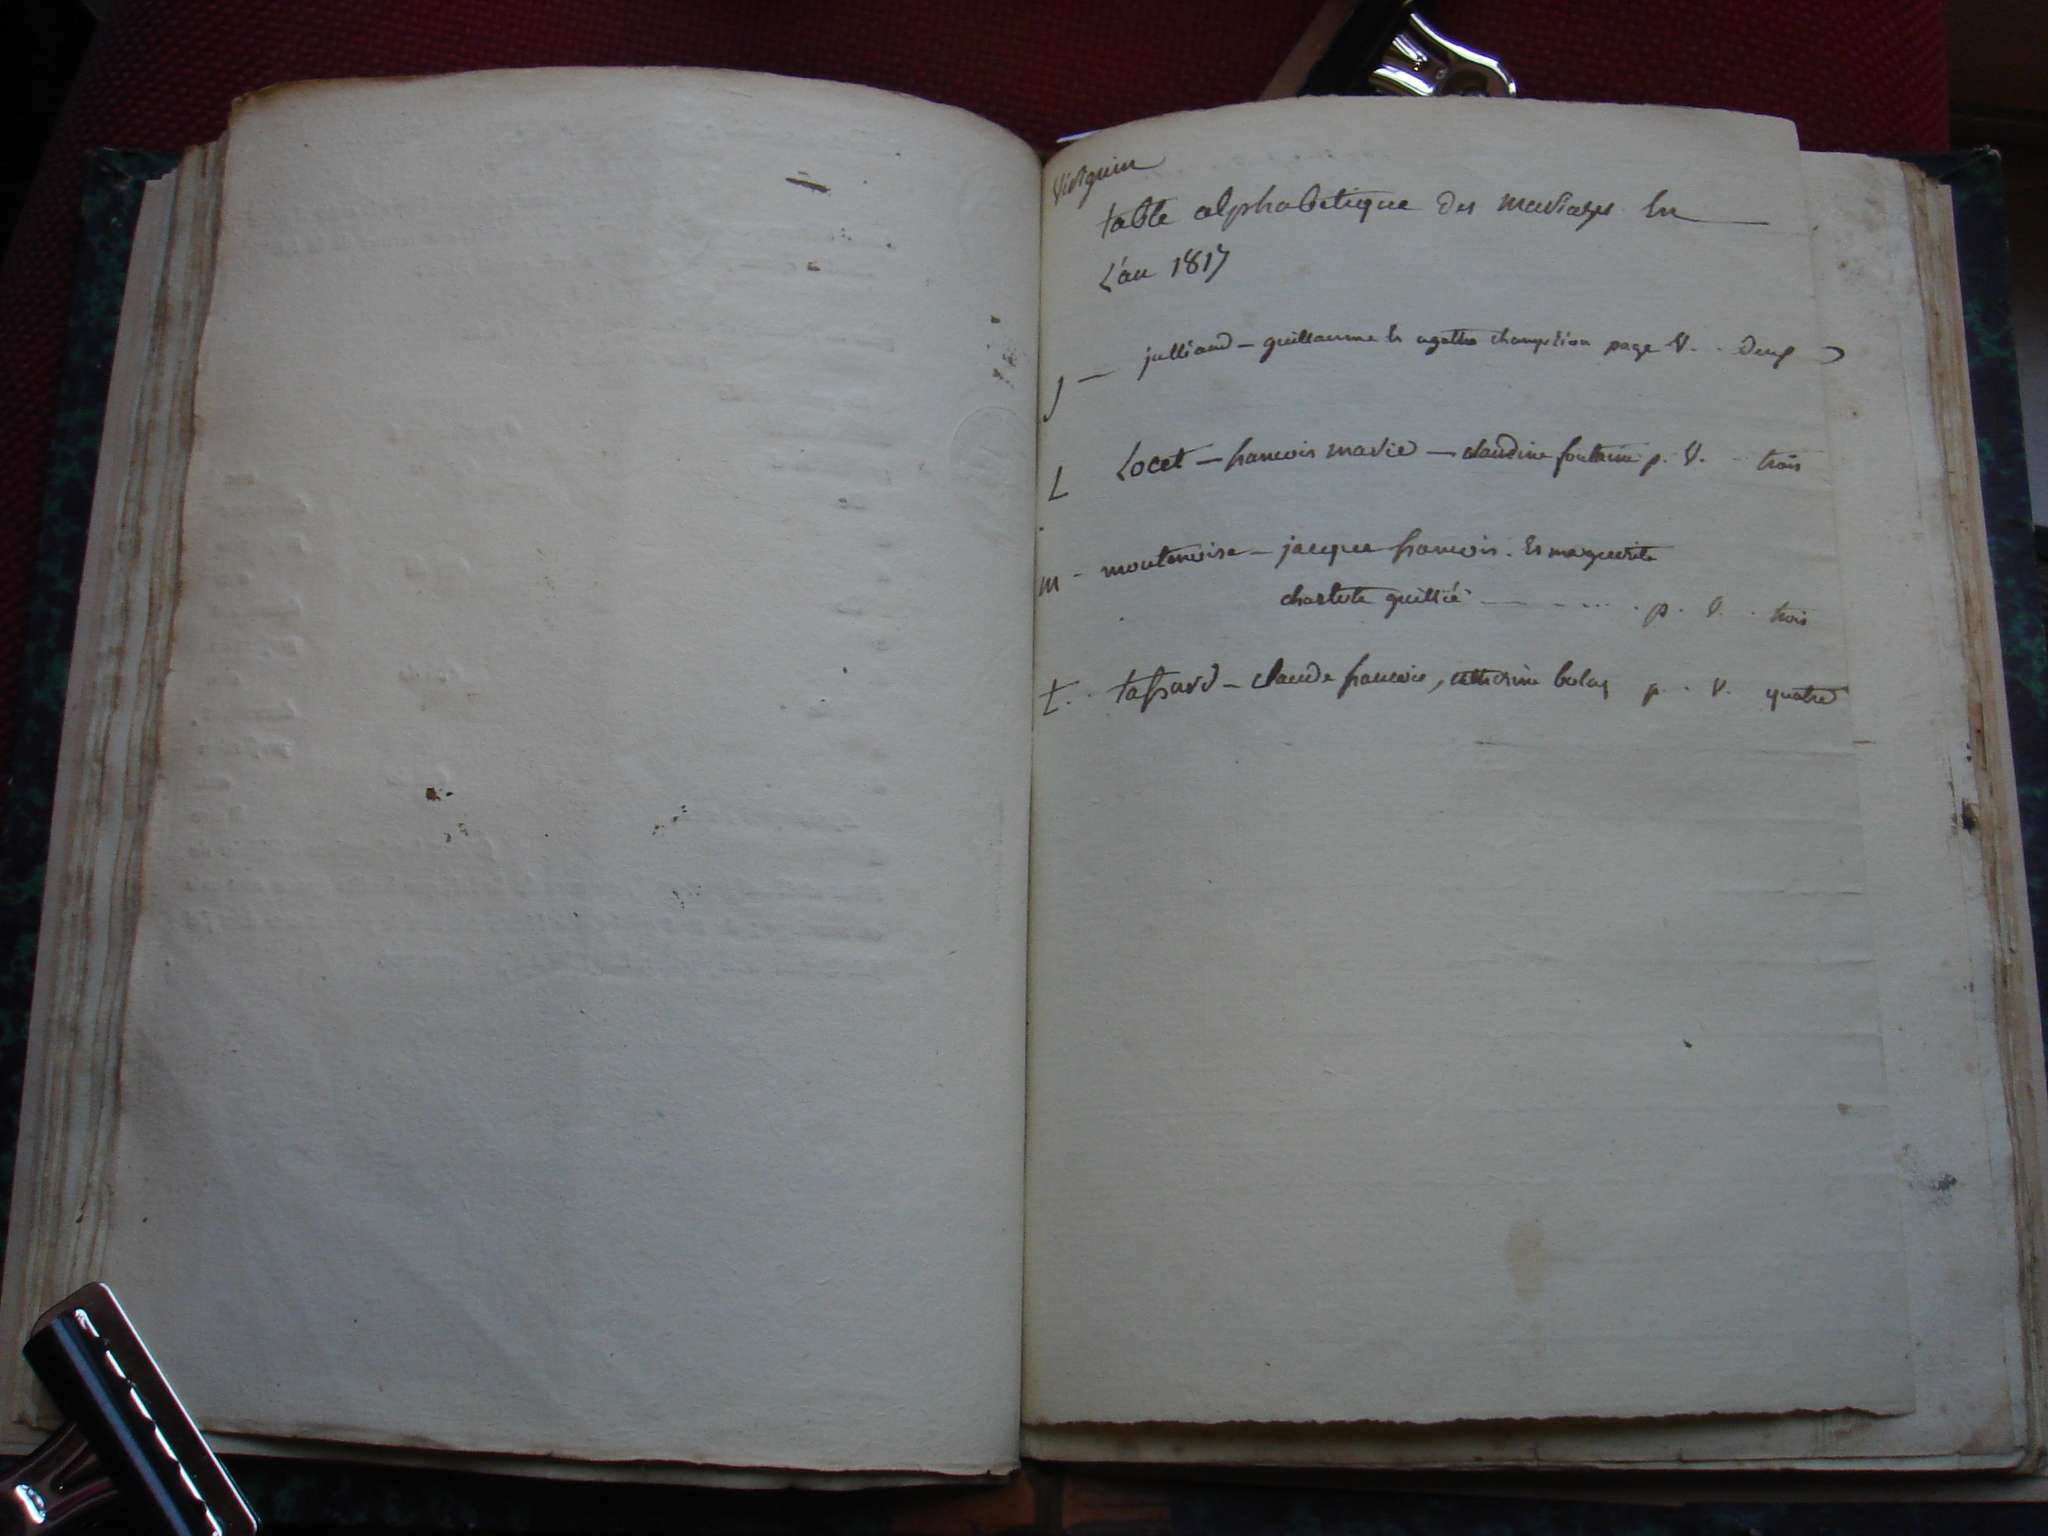 table alphabetique des mariages En
L'an 1817
J — julliard – guillaume Et agathe chamption page V. . deux
L Locet – francois marie – claudine fontaine p. V. .. trois
m - montenoise – jacque francois. Et marguerite
charlote p. V. . trois
t. tassard – claude francois, catherine p. . V. quatre